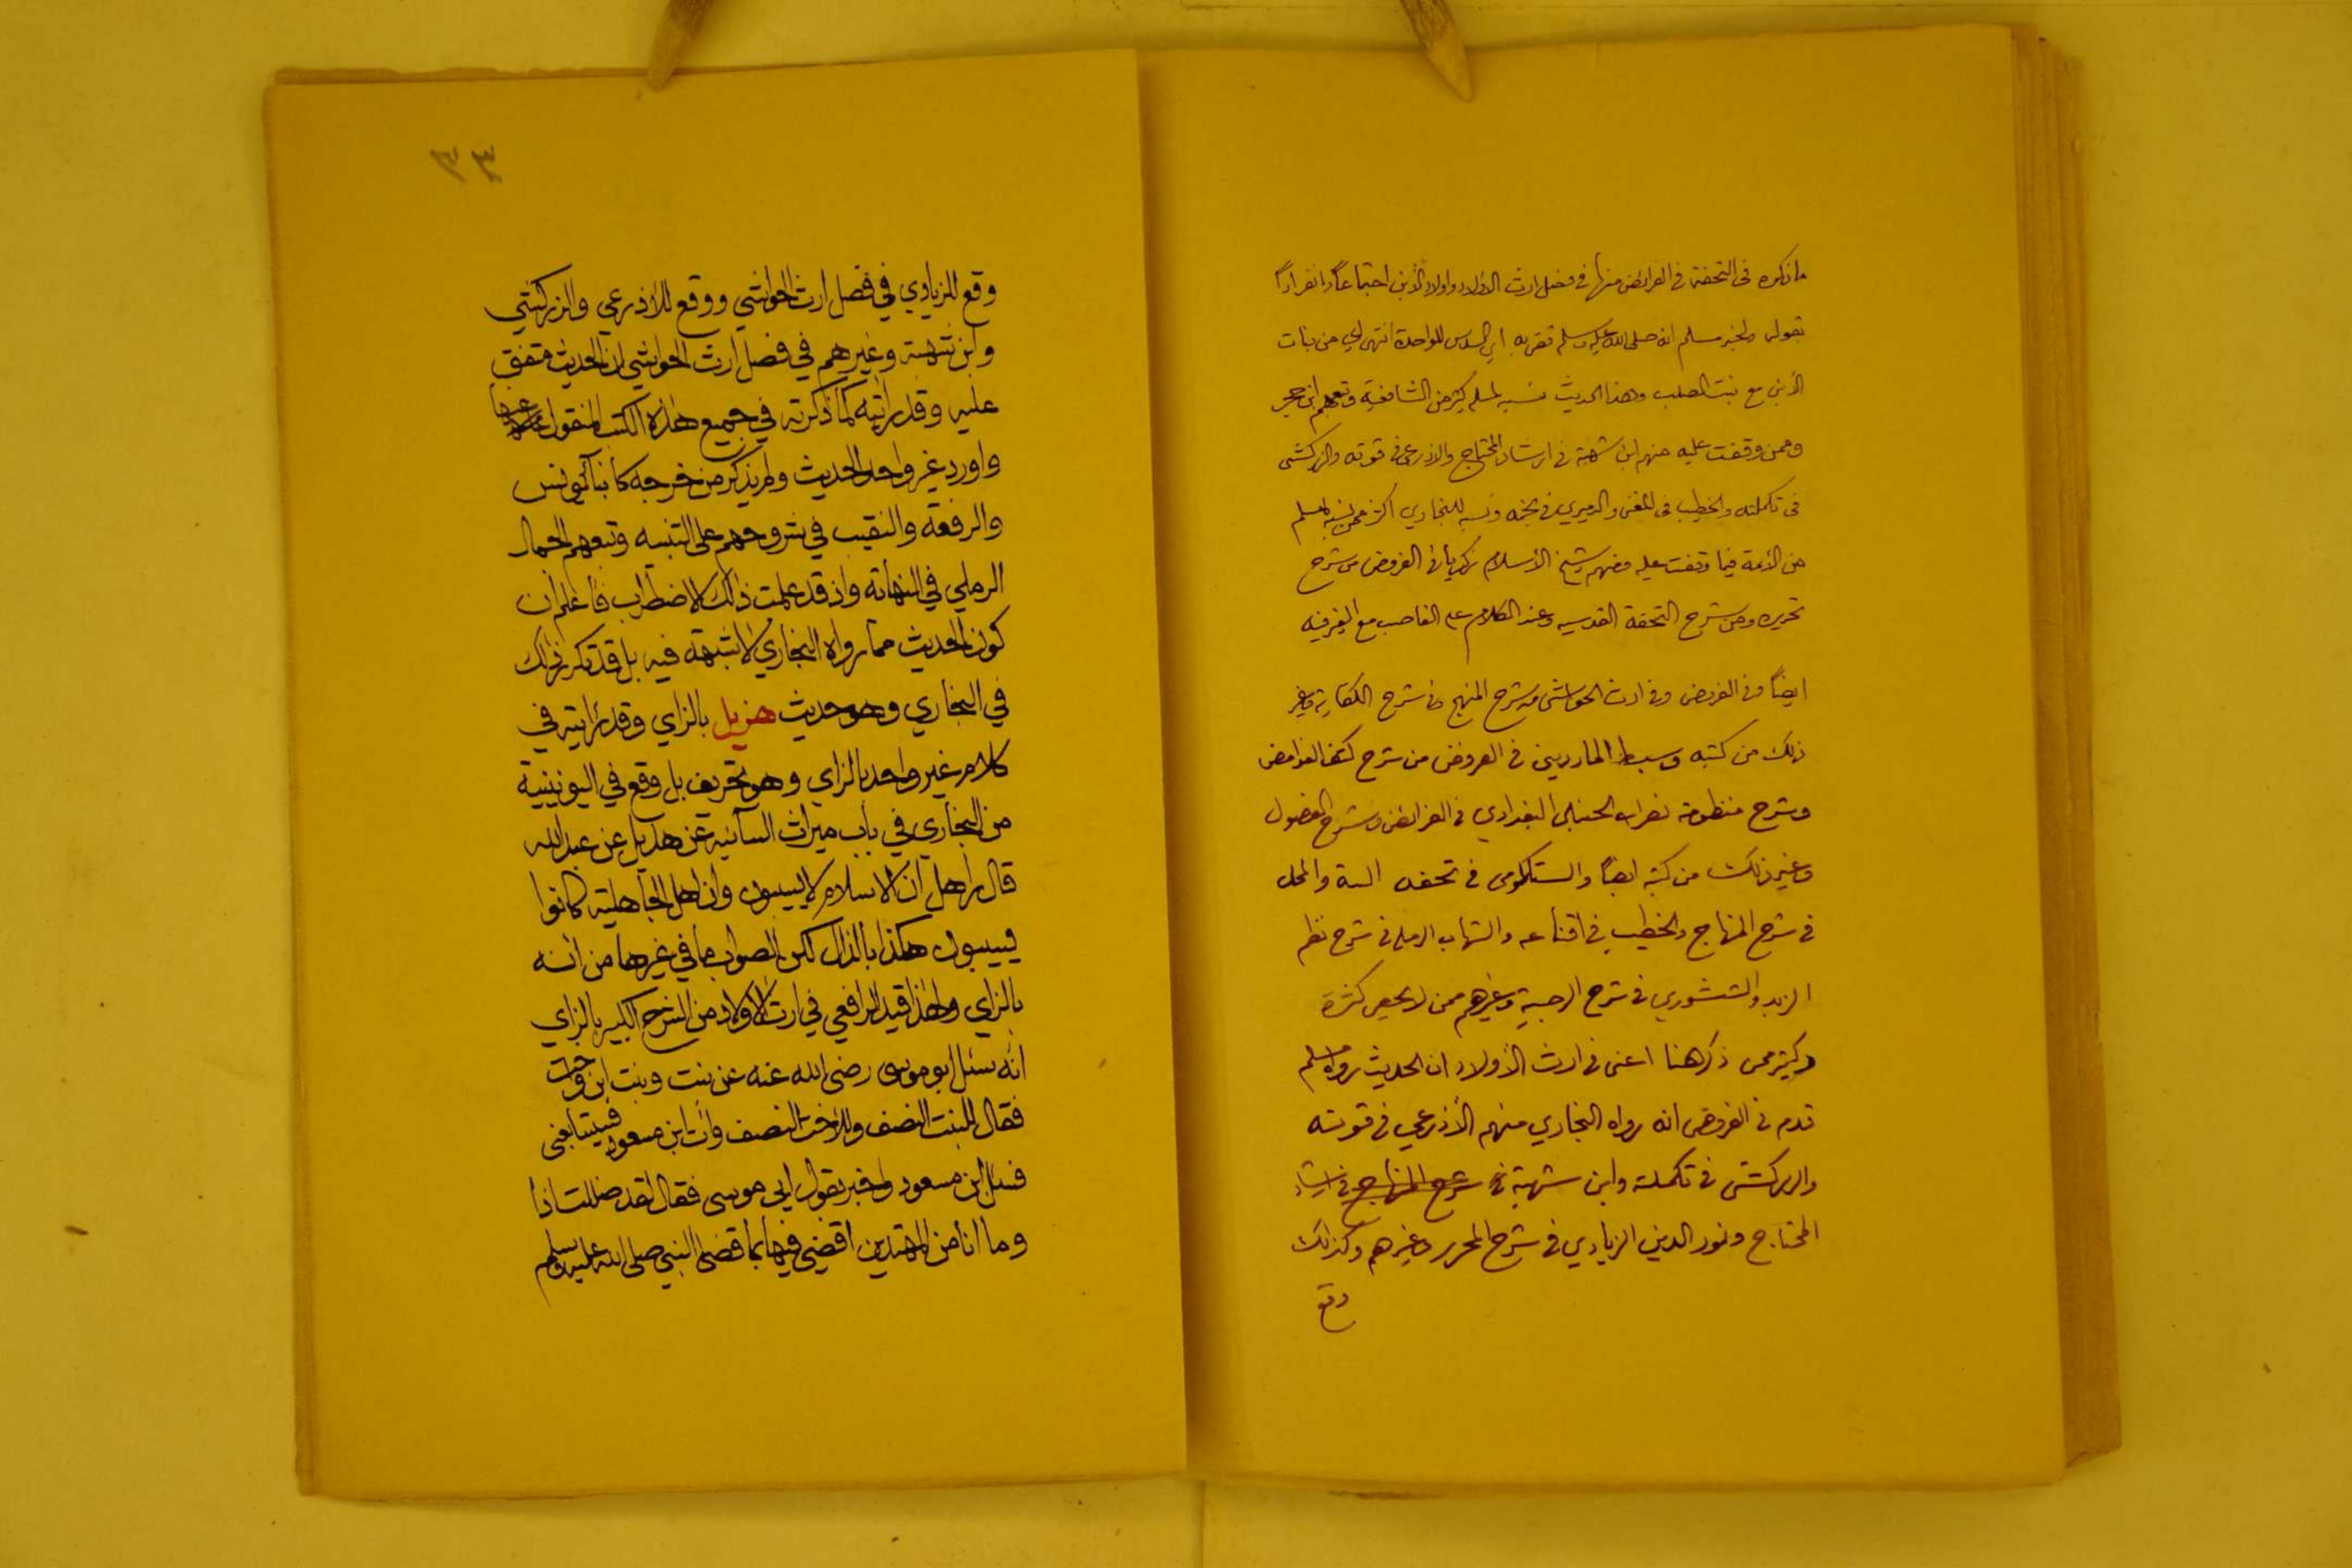 ما ذكره في التحفة في الفرائض منها في فصل ارث الاولاد واولاد الابن اجتماعاً وانفراداً
بقوله ولخبر مسلم انه صلى الله عليه وسلم قضى به اي السدس للواحدة انتهى اي من بنات
الأبن مع بنت الصلب وهذا الحديث نسبه لمسلم كثير من الشافعية وتبعهم ابن حجر
وممن وقفت عليه منهم ابن شهبة في ارشاد المحتاج والاذرعي في قوته والزركشي
في تكملته والخطيب في المغني والدميري في نجمه ونسبه للبخاري اكثر ممن نسبه لمسلم
من الأئمة فيما وقفت عليه فمنهم شيخ الأسلام زكريا في الفروض من شرح
تحريره ومن شرح التحفة القدسيه وعند الكلام على العاصب مع الغير فيه
ايضاً في الفروض وفي ارث الحواشي من شرح المنهج وفي شرح الكفاية وغير
ذلك من كتبه وسبط المارديني في الفروض من شرح كشف الغوامض
وشرح منظومة نصر الله الحنبلي البغدادي في الفرائض وشرح الفصول
وغير ذلك من كتبه ايضاً والسنكلومي في تحفة والمحلي
في شرح المنهاج والخطيب في اقناعه والشهاب الرملي في شرح نظم
الزبد والشنشوري في شرح الرحبية وغيرهم ممن لا يحصى كثرة
وكثير ممن ذكر هنا اعني في ارث الأولاد ان الحديث رواه مسلم
قدم في الفروض انه رواه البخاري منهم الأذرعي في قوته
والزركشي في تكملته وابن شهبة في شرح المنهاج في ارشاد
المحتاج ونور الدين الزيادي في شرح المحرر وغيرهم وكذلك
وقع
٣٣
وقع للزيادي في فصل ارث الحواشي ووقع للأذرعي والزركشي
وابن شهبة وغيرهم في فصل ارث الحواشي ان الحديث متفق
عليه وقد رأيته كما ذكرته في جميع هاذه الكتب المنقول عنها
واورد غير واحد الحديث ولم يذكر من خرجه كأبناء يونس
والرفعة والنقيب في شروحهم على التنبيه وتبعهم الجمال
الرملي في النهاية واذ قد علمت ذالك الاضطراب فأعلم ان
كون الحديث مما رواه البخاري لا شبهة فيه بل قد تكرر ذلك
في البخاري وهو حديث هزيل بالزاي وقد رأيته في
كلام غير واحد بالزاي وهو تحريف بل وقع في اليونينية
من البخاري في باب ميراث السائبة عن هذيل عن عبد الله
قال ان اهل الاسلام لا يسيبون وان اهل الجاهلية كانوا
يسيبون هكذا بالذال لكن الصواب ما في غيرها من انه
بالزاي ولهذا قيد الرافعي في ارث الاولاد من الشرح الكبير بالزاي
انه سئل ابو موسى رضي الله عنه عن بنت وبنت ابن واخت
فقال للبنت النصف وللأخت النصف وأت ابن مسعود فسيتابعني
فسئل ابن مسعود واخبر بقول ابي موسى فقال لقد ضللت اذا
وما انا من المهتدين اقضي فيها بما قضى النبي صلى الله عليه وسلم